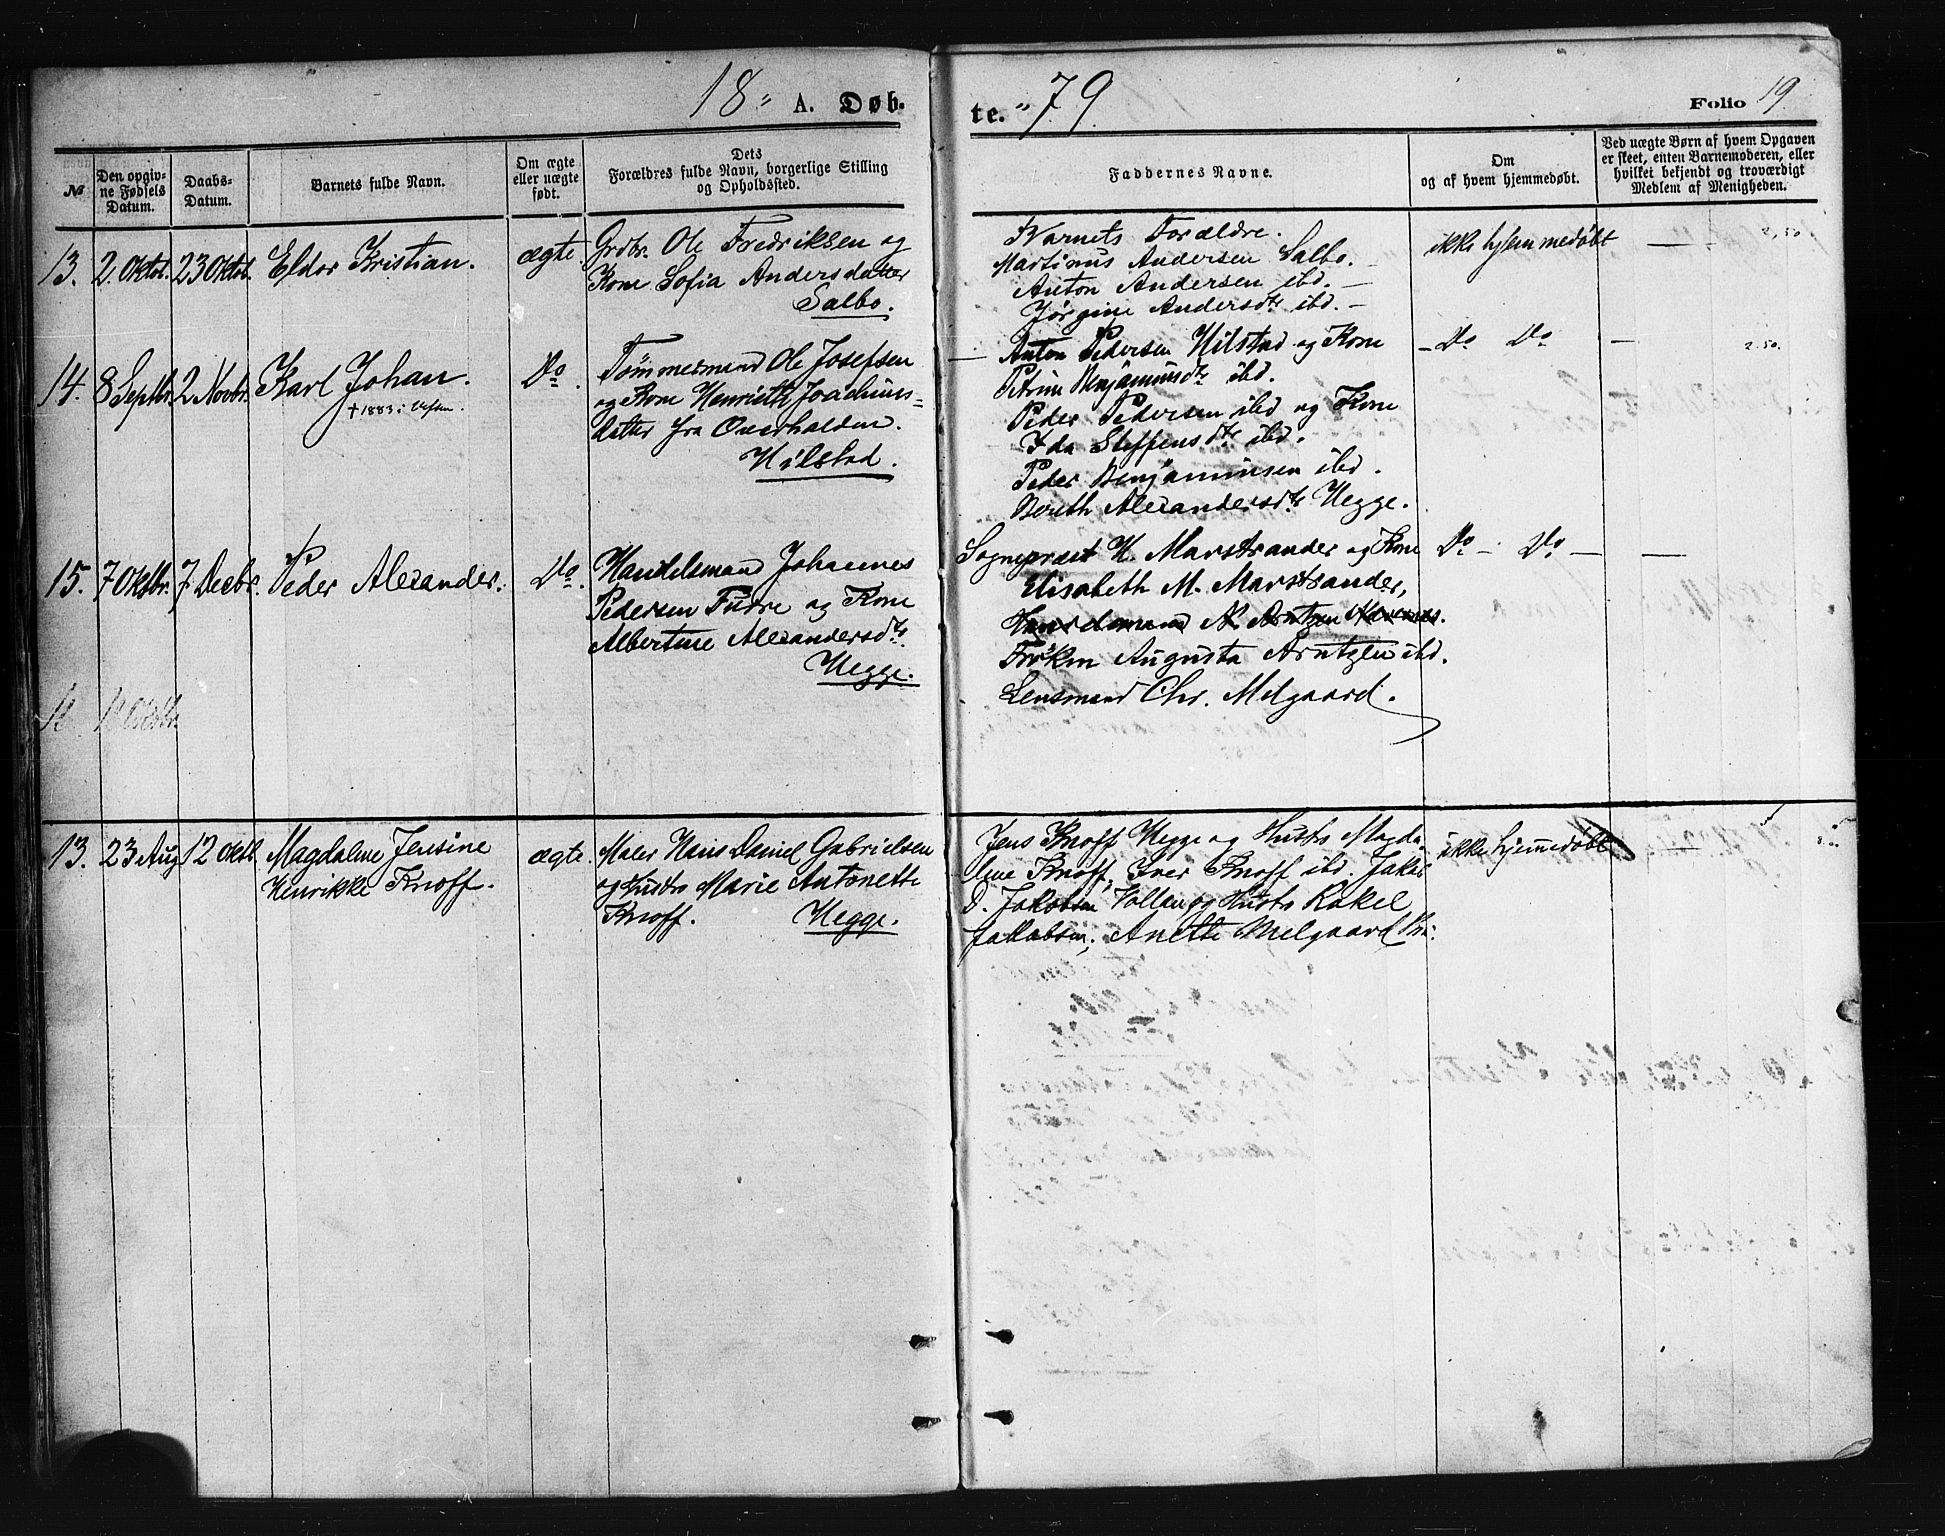 18 " A. Døb-
te. " 79.
Folio 19
№
Den opgiv-
ne Fødsels
Datum.
Daabs-
Datum.
Barnets fulde Navn.
Om ægte
eller uægte
født.
Dets
Forældres fulde Navn, borgerlige Stilling
og Opholdssted.
Faddernes Navne.
Om
og af hvem hjemmedøbt.
Ved uægte Børn af hvem Opgaven
er skeet, enten Barnemoderen, eller
hvilket bekjendt og troværdigt
Medlem af Menigheden.
13.
2. Oktbr.
23 Oktbr.
Eldor Kristian.
ægte.
Grdbr. Ole Fredriksen og
Kone Sofia Andersdatter
Salbo.
Barnets Forældre.
Martinus Andersen Salbo.
Anton Andersen ibd. –
Jørgine Andersdtr ibd. –
ikke hjemmedøbt
—
2,50
14.
8 Septbr.
2 Novbr.
Karl Johan.
† 1883 i
Do.
Tömmermand Ole Josefsen
og Kone Henrieth Joachims=
datter fra Overhalden.
Hilstad.
— Anton Pedersen Hilstad og Kone
Petrine Benjaminsdtr ibd.
Peder Pedersen ibd og Kone
Ida Steffensdtr ibd.
Peder Benjaminsen ibd.
Bereth Alexandersdtr Hegge.
– Do Do
—
2.50.
15.
7 Oktbr.
7 Decbr.
Peder Alexander.
Do.
Handelsmand Johannes
Pedersen Furre og Kone
Albertine Alexandersdtr.
Hegge.
Sognepræst H. Marstrander og Kone
Elisabeth M. Marstrander,
Handelsmand N. Arntzen
Frøken Augusta Arntzen ibd.
Lensmand Chr. Melgaard.
Do – Do –
—
13.
23 Aug
12 Oktb.
Magdalene Jensine
Henrikke Knoff.
ægte.
Maler Hans Daniel Gabrielsen
og Hustro Marie Antonette
Knoff. Hegge.
Jens Knoff Hegge og Hustr Magda
lene Knoff, Iver Knoff ibd. Jakob
D. Jakobsen Vollan og Hustr Rakel
Jakobsen, Anette Melgaard
ikke hjemmedøbt
—